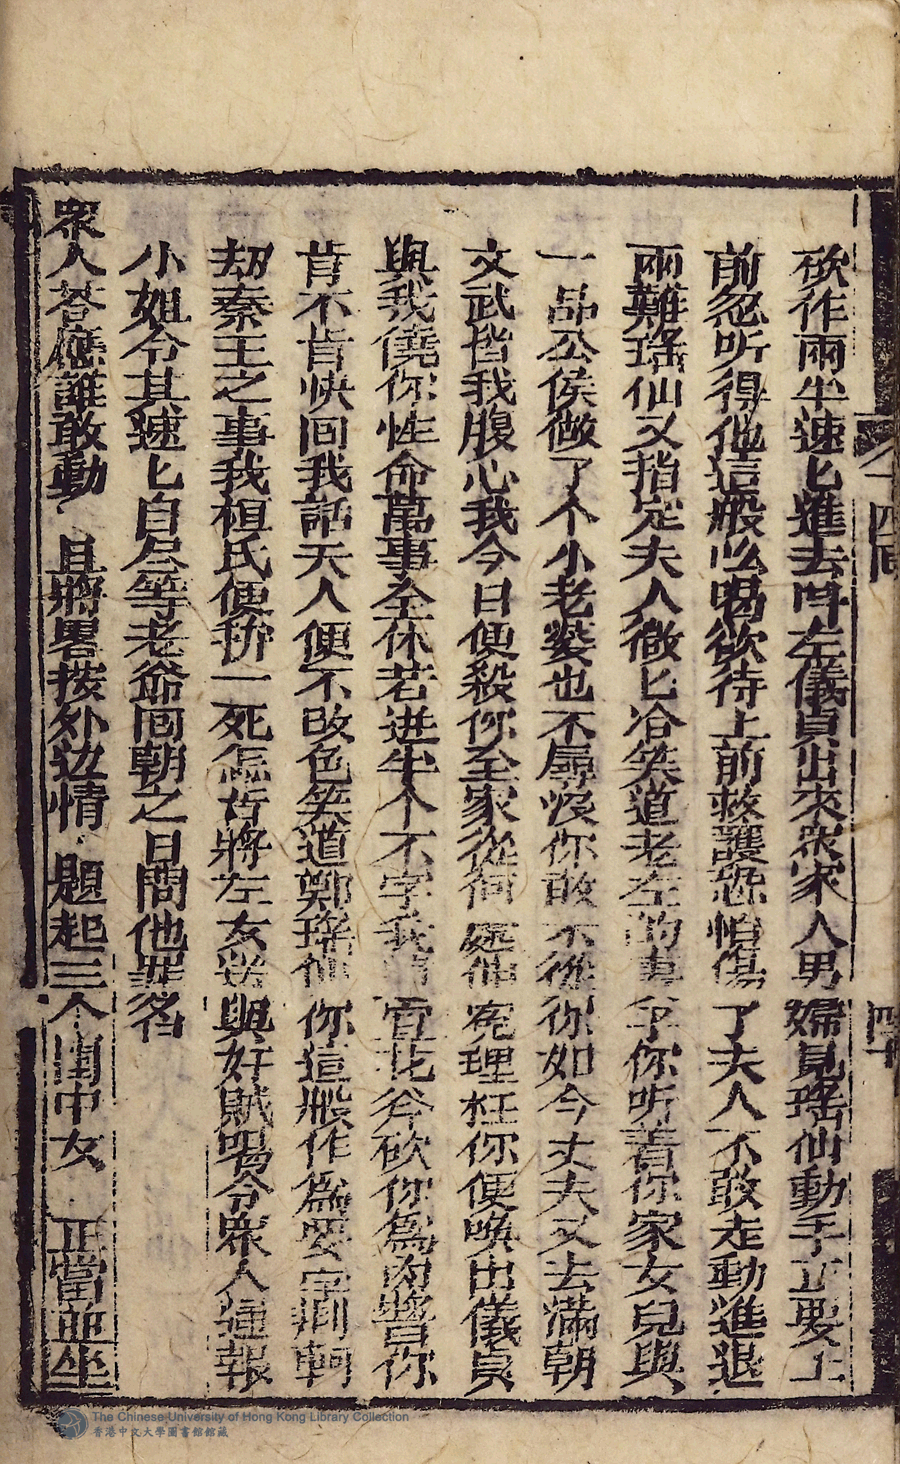 砍作兩半速匕進去呌左儀貞出來衆家人男婦見瑤仙動手立要上
前忽听得他這般么喝欲待上前救護恐怕傷了夫人不敢走動進退
兩難瑤仙又指定夫人微匕冷笑道老左的妻子你听着你家女兒與
一品公侯做了个小老婆也不辱沒你敢不從你如今丈夫又去滿朝
文武皆我腹心我今日便殺你全家從何處伸寃理枉你便喚出儀貞
與我僥你性命萬事全休若迸半个不字我 宣花斧砍你爲肉醬你
肯不肯快回我話夫人便不改色笑道鄭瑤仙你這般作爲要字刑軻
刼秦王之事我桓氏便拚一死怎肯將左女送與奸賊喝令衆人通報
小姐令其速匕自尽等老爺囘朝之日問他罪名
衆人荅應誰敢動 且將畧撥外边情 題起三个閨中女 正當並坐
四囘
四十
The Chinese University of Hong Kong Library Collection
香港中文大學圖書館館藏